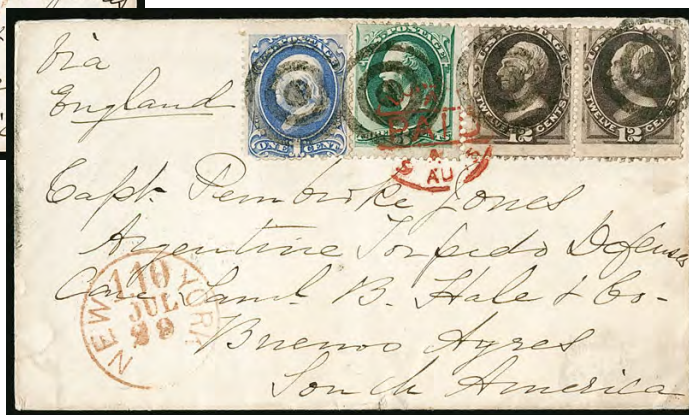 Via
England
POSTAGE
ONE CENT
POSTAGE
TWELVE 12 CENTS
TWELVE 12 CENTS
PAID
AU
Capt. Pembroke Jones
Argentine Torpedo Defenses
Care Saml. B. Hale & Co-
Buenos Ayres
South America
NEW YORK
110
JUL
29